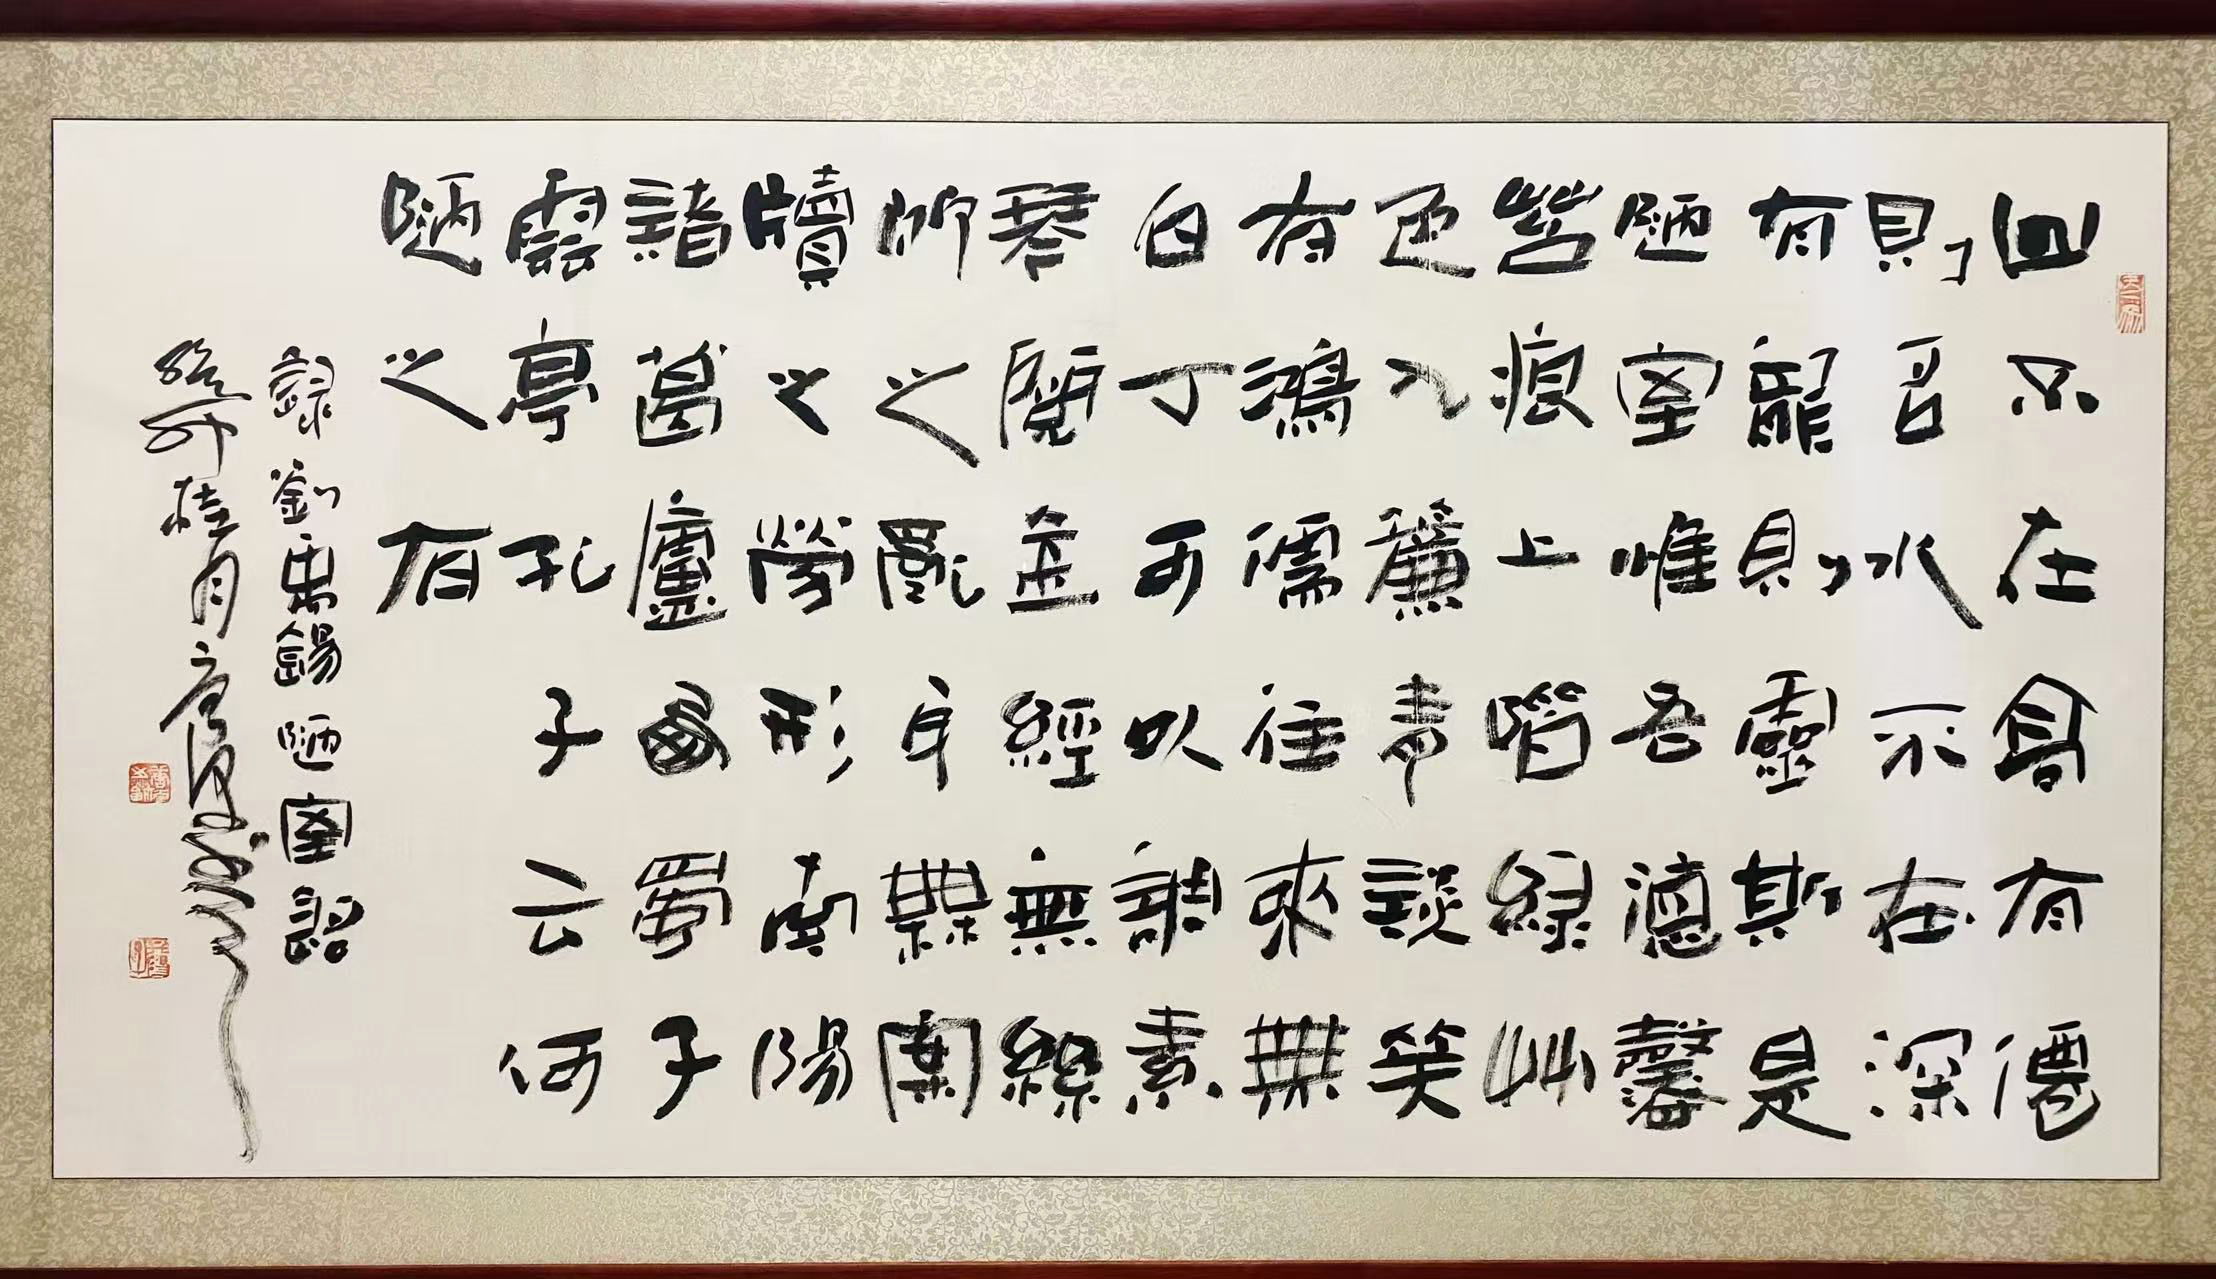 山不在高有僊
則名水不在深
有龍則靈斯是
陋室惟吾德馨
苔痕上階綠艸
色入簾青談笑
有鴻儒往來無
白丁可以調素
琴閱金經無絲
竹之亂耳無案
牘之勞形南陽
諸葛廬西蜀子
雲亭孔子云何
陋之有
錄劉禹錫陋室銘
桂月